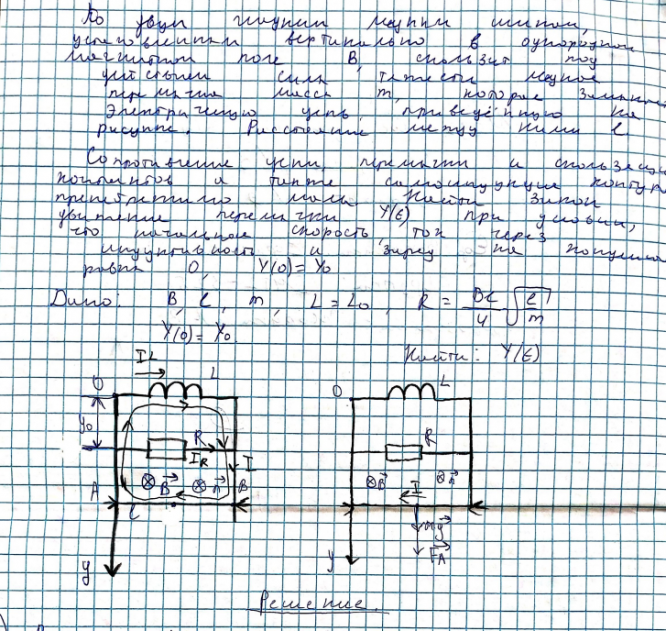 По двум гладким медным шинам,
установленным вертикально в однородном
магнитном поле B, скользит под
действием силы тяжести медная
перемычка массы m, которая замыкает
электрическую цепь, приведённую на
рисунке. Расстояние между ними l
Сопротивление шин, перемычки и скользящих
контактов а также самоиндукция контура
пренебрежимо малы. Найти закон
движения перемычки Y(t) при условии,
что начальное скорость, ток через
индуктивность и заряд на
равны 0, Y(0) = Y0
Дано: B, l, m, L = L0, R = Bl/4 √
Y(0) = Y0
Найти: Y(t)
IL L
0 L
y0
R
IR I
R
A B B
l
B I
mg
FA
y
y
Решение.